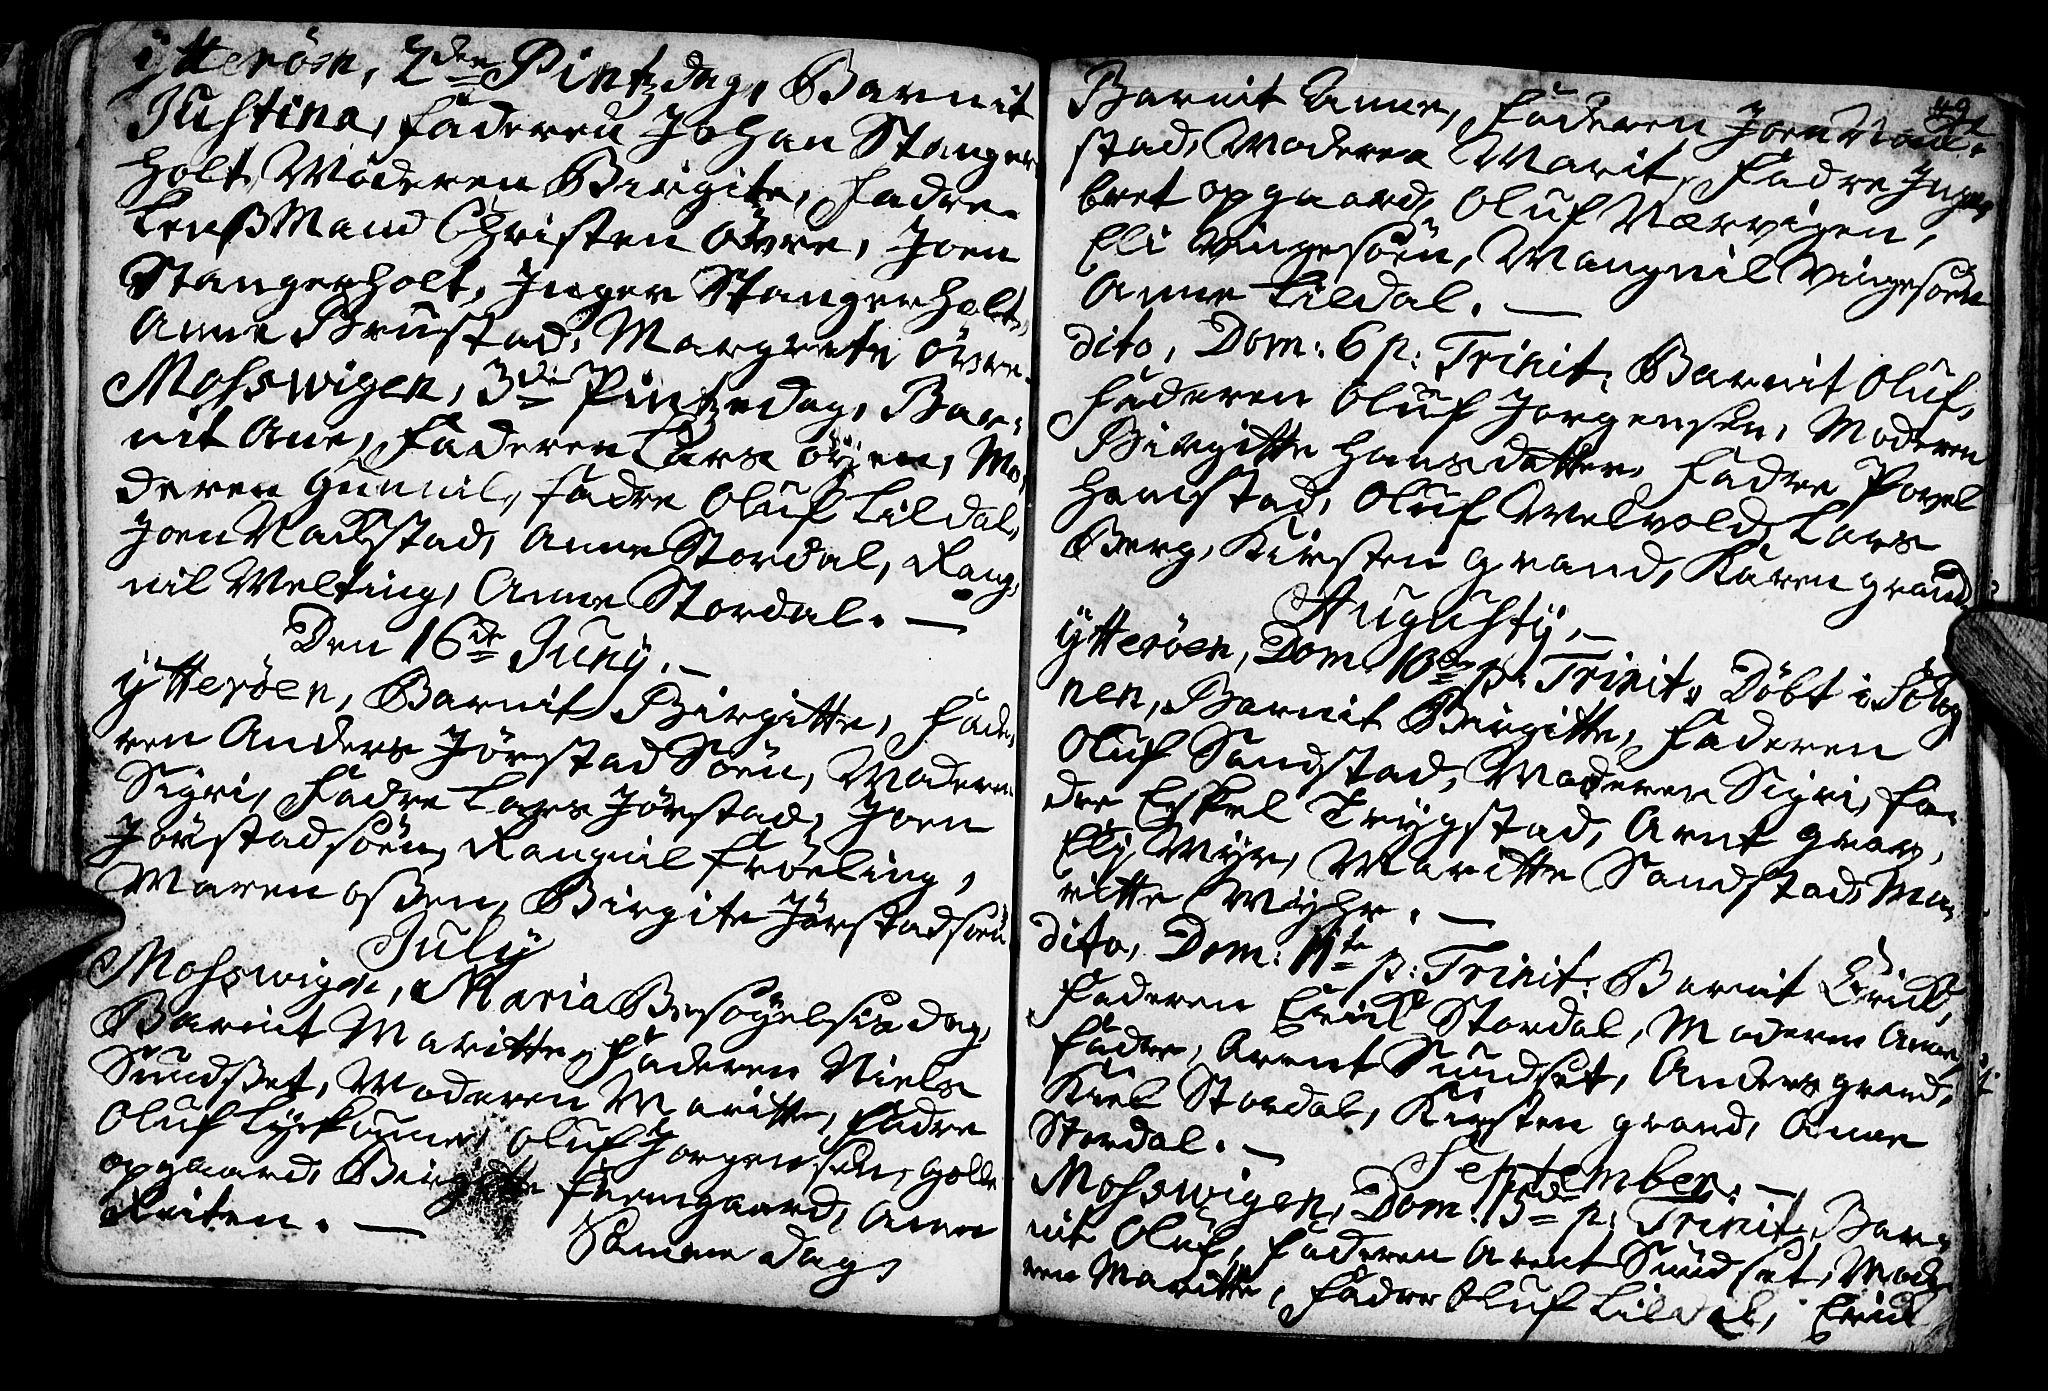 ytteröen, 2den Pintzdag, Barnit
Justina, Faderen Johan Stanger
holt, Moderen Birgite, Fadre
Lenßmand Christen Övre, Joen
Stangerholt, Inger Stangerholt,
Anne Brustad, Margrete Övre.
Mohswigen, 3die Pintzedag, Bar-
nit Ane, Faderen Lars Öyen, Mo,
deren Gunnil, Fadre Oluf Lildal,
Joen Nackstad, Anne Stordal, Rang,
nil Welting, Anne Stordal. —
Den 16de Juny. —
ytteröen, Barnit Birgitte, Fade,
ren Anders Jörstad Söen, Moderen
Sigri, Fadre Lars Jörstad, Joen
Jörstadsöen, Rangnil Fröeling,
Maren oßen, Birgite Jörstadsöen
July
Mohswigen, Maria Besøgelsis dag,
Barnit Maritte, Faderen Niels
Sundset, Moderen Maritte, Fadre
Oluf Lyckomme, Oluf Jorgensen, Golle
opgaard, Birgitte Fremgaard, Anne
Reiten. —
Samme dag,
49
Barnit Anne, Faderen Joen Nack-
stad, Moderen Marit, Fadre Inge,
bret opgaard, Oluf Værvigen,
Eli Vingesöen, Mangnil Vingesöen
Anne Lildal. —
dito, Dom: 6 p: Trinit, Barnit Oluf,
Faderen Oluf Jorgensen, Moderen
Birgitte Hansdatter, Fadre Povel
Hamstad, Oluf Melvold, Lars
Berg, Kirsten grand, Karen grand,
Augusty. —
ytteröen, Dom. 10de p: Trinit, Döbt i
nen, Barnit Birgitte, Faderen
Oluf Sandstad, Moderen Sigri, Fa-
dre Eskel Trygstad, Arnt
Eli Myr, Maritte Sandstad, Ma,
ritte Myhr. —
dito, Dom: 11te p: Trinit: Barnit Erick,
Faderen Erick Stordal, Moderen Anne,
Fadre, Arent Sundset, Anders grand,
Kiel Stordal, Kirsten grand, Anne
Stordal. —
September. —
Mohswigen, Dom: 15de p: Trinit, Bar,
nit Oluf, Faderen Arent Sundset, Mode
ren Maritte, Fadre Oluf Lildal, Erick